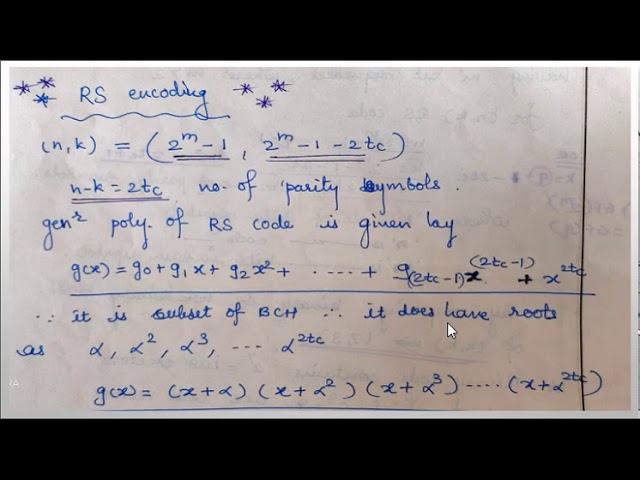 RS encoding
(n,k) = (2^m-1, 2^m-1-2tc)
n-k = 2tc no. of parity symbols.
gen^r poly. of RS code is given lay
g(x) = g0 + g1x + g2x² + ..... + g(2tc-1)x^(2tc-1) + x^2tc
∵ it is subset of BCH ∴ it does have roots
as α, α², α³, ... α^2tc
g(x) = (x+α) (x+α²) (x+α³) ..... (x+α^2tc)